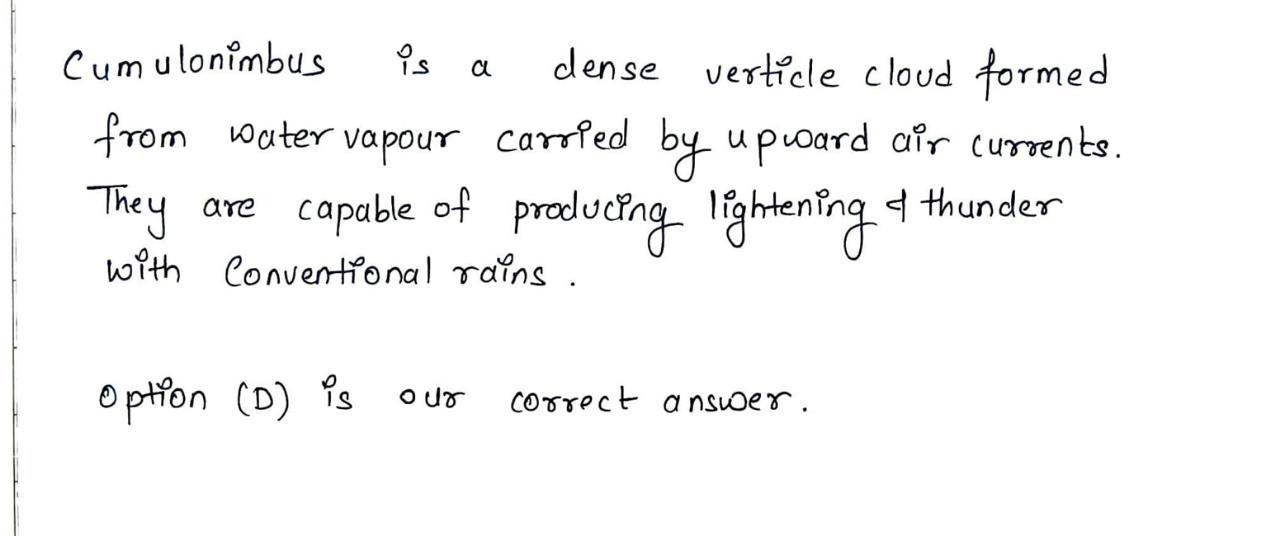 Cumulonimbus is a dense verticle cloud formed
from water vapour carried by upward air currents.
They are capable of producing lightening & thunder
with Conventional rains.
Option (D) is our correct answer.